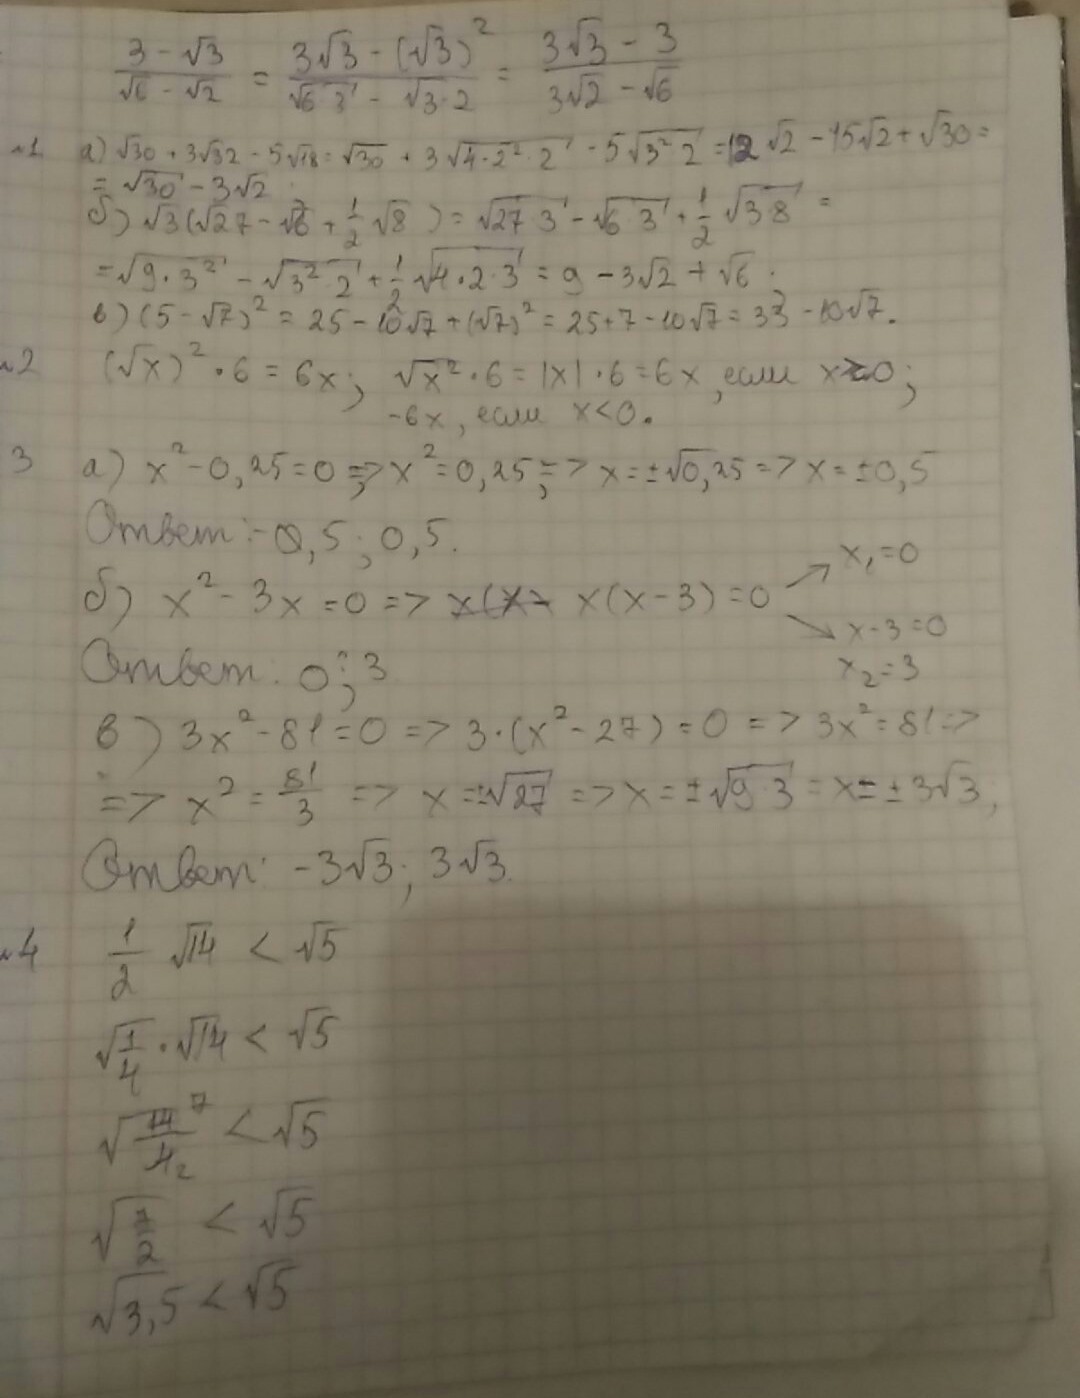 (3 - √3)/(√6 - √2) = (3√3 - (√3)²)/(√6·3 - √3·2) = (3√3 - 3)/(3√2 - √6)
№1 а) √30 + 3√32 - 5√18 = √30 + 3√4·2²·2 - 5√3²·2 = 12√2 - 15√2 + √30 =
= √30 - 3√2.
б) √3(√27 - √6 + 1/2 √8) = √27·3 - √6·3 + 1/2 √3·8 =
= √9·3² - √3²·2 + 1/2 √4·2·3 = 9 - 3√2 + √6.
в) (5 - √7)² = 25 - 10√7 + (√7)² = 25 + 7 - 10√7 = 32 - 10√7.
№2 (√x)²·6 = 6x; √x²·6 = |x|·6 = 6x, если x≥0;
-6x, если x<0.
3 а) x² - 0,25 = 0 => x² = 0,25; => x = ±√0,25 => x = ±0,5
Ответ: -0,5; 0,5.
б) x² - 3x = 0 => x(x - 3) = 0
x₁ = 0
x - 3 = 0
x₂ = 3
Ответ: 0; 3
в) 3x² - 81 = 0 => 3·(x² - 27) = 0 => 3x² = 81 =>
=> x² = 81/3 => x = ±√27 => x = ±√9·3 = x = ±3√3;
Ответ: -3√3; 3√3.
№4 1/2 √14 < √5
√1/4 · √14 < √5
√14/4 7 2 < √5
√7/2 < √5
√3,5 < √5